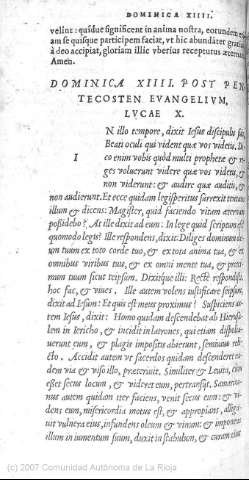 DOMINICA XIIII.
velint: quidue significent in anima nostra, eorundem
am se quisque participem faciat, vt hic abundāter gratia
à deo accipiat, gloriam illic vberius recepturus æternam
Amen.
DOMINICA XIIII. POST PEN
TECOSTEN EVANGELIVM,
LVCAE X.
IN illo tempore, dixit Iesus discipulis suis,
Beati oculi qui vident quæ vos videtis. Di
co enim vobis quòd multi prophetæ & re
ges voluerunt videre quæ vos videtis, &
non viderunt: & audire quæ auditis, &
non audierunt. Et ecce quidam legisperitus surrexit tentans
illum & dicens: Magister, quid faciendo vitam æternam
possidebo? At ille dixit ad eum: In lege quid scriptum est
quomodo legis? Ille respondens, dixit: Diliges dominum de-
um tuum ex toto corde tuo, & ex tota anima tua, & ex
omnibus viribus tuis, & ex omni mente tua, & proxi
mum tuum sicut teipsum. Dixitque illi: Rectè respondisti,
hoc fac, & viues. Ille autem volens iustificare seipsum,
dixit ad Iesum: Et quis est meus proximus? Suspiciens au-
tem Iesus, dixit: Homo quidam descendebat ab Hierusa
lem in Iericho, & incidit in latrones, qui etiam dispolia-
uerunt eum, & plagis impositis abierunt, semiuiuo reli
cto. Accidit autem vt sacerdos quidam descenderet ea-
dem via & viso illo, præteriuit. Similiter & Leuita, cùm
esset secus locum, & videret eum, pertransijt. Samarita-
nus autem quidam iter faciens, venit secus eum: & vi-
dens eum, misericordia motus est, & appropians, alliga-
uit vulnera eius, infundens oleum & vinum: & imponens
illum in iumentum suum, duxit in stabulum, & curam eius
(c) 2007 Comunidad Autónoma de La Rioja